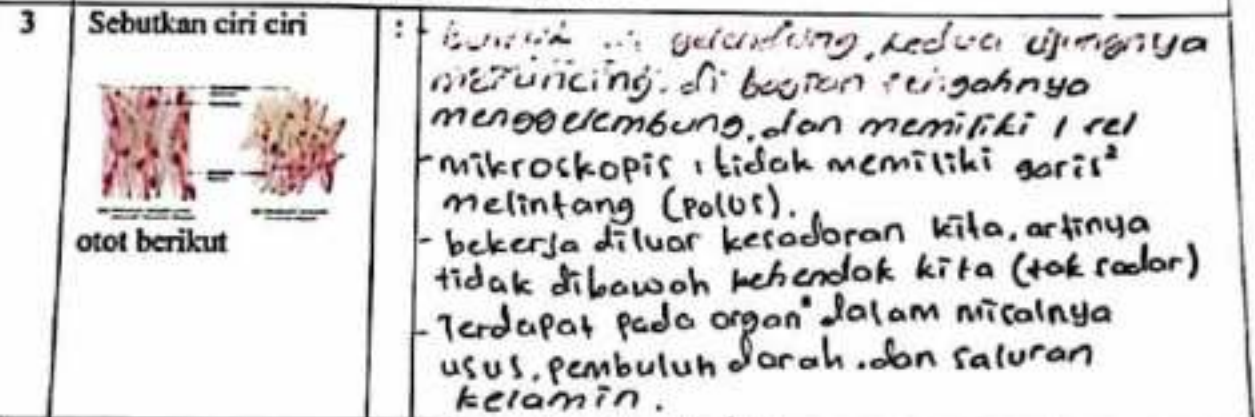 3
Sebutkan ciri ciri
otot berikut
:
- gelendung, kedua ujungnya
meruncing. di bagian tengahnya
menggelembung, dan memiliki 1 sel
- mikroskopis : tidak memiliki garis²
melintang (polos).
- bekerja diluar kesadaran kita, artinya
tidak dibawah kehendak kita (tak sadar)
- Terdapat pada organ² dalam misalnya
usus, pembuluh darah, dan saluran
kelamin.